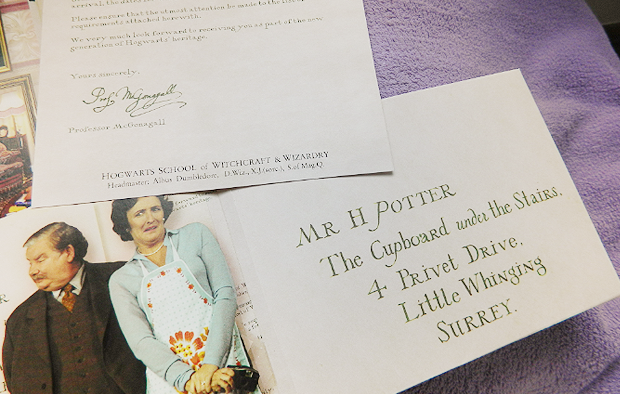 Please ensure that the utmost attention be made to the list of
requirements attached herewith.
We very much look forward to receiving you as part of the new
generation of Hogwarts' heritage.
Yours sincerely,
Prof. McGonagall
Professor McGonagall
HOGWARTS SCHOOL of WITCHCRAFT & WIZARDRY
Headmaster: Albus Dumbledore, D.Wiz., X.J.(sorc.), S.of Mag.Q.
MR H POTTER
The Cupboard under the Stairs,
4 Privet Drive,
Little Whinging
SURREY.